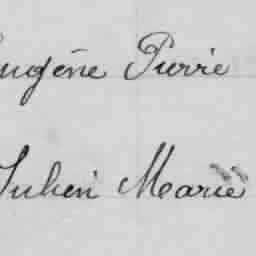 Eugène Pierre
Julien Marie